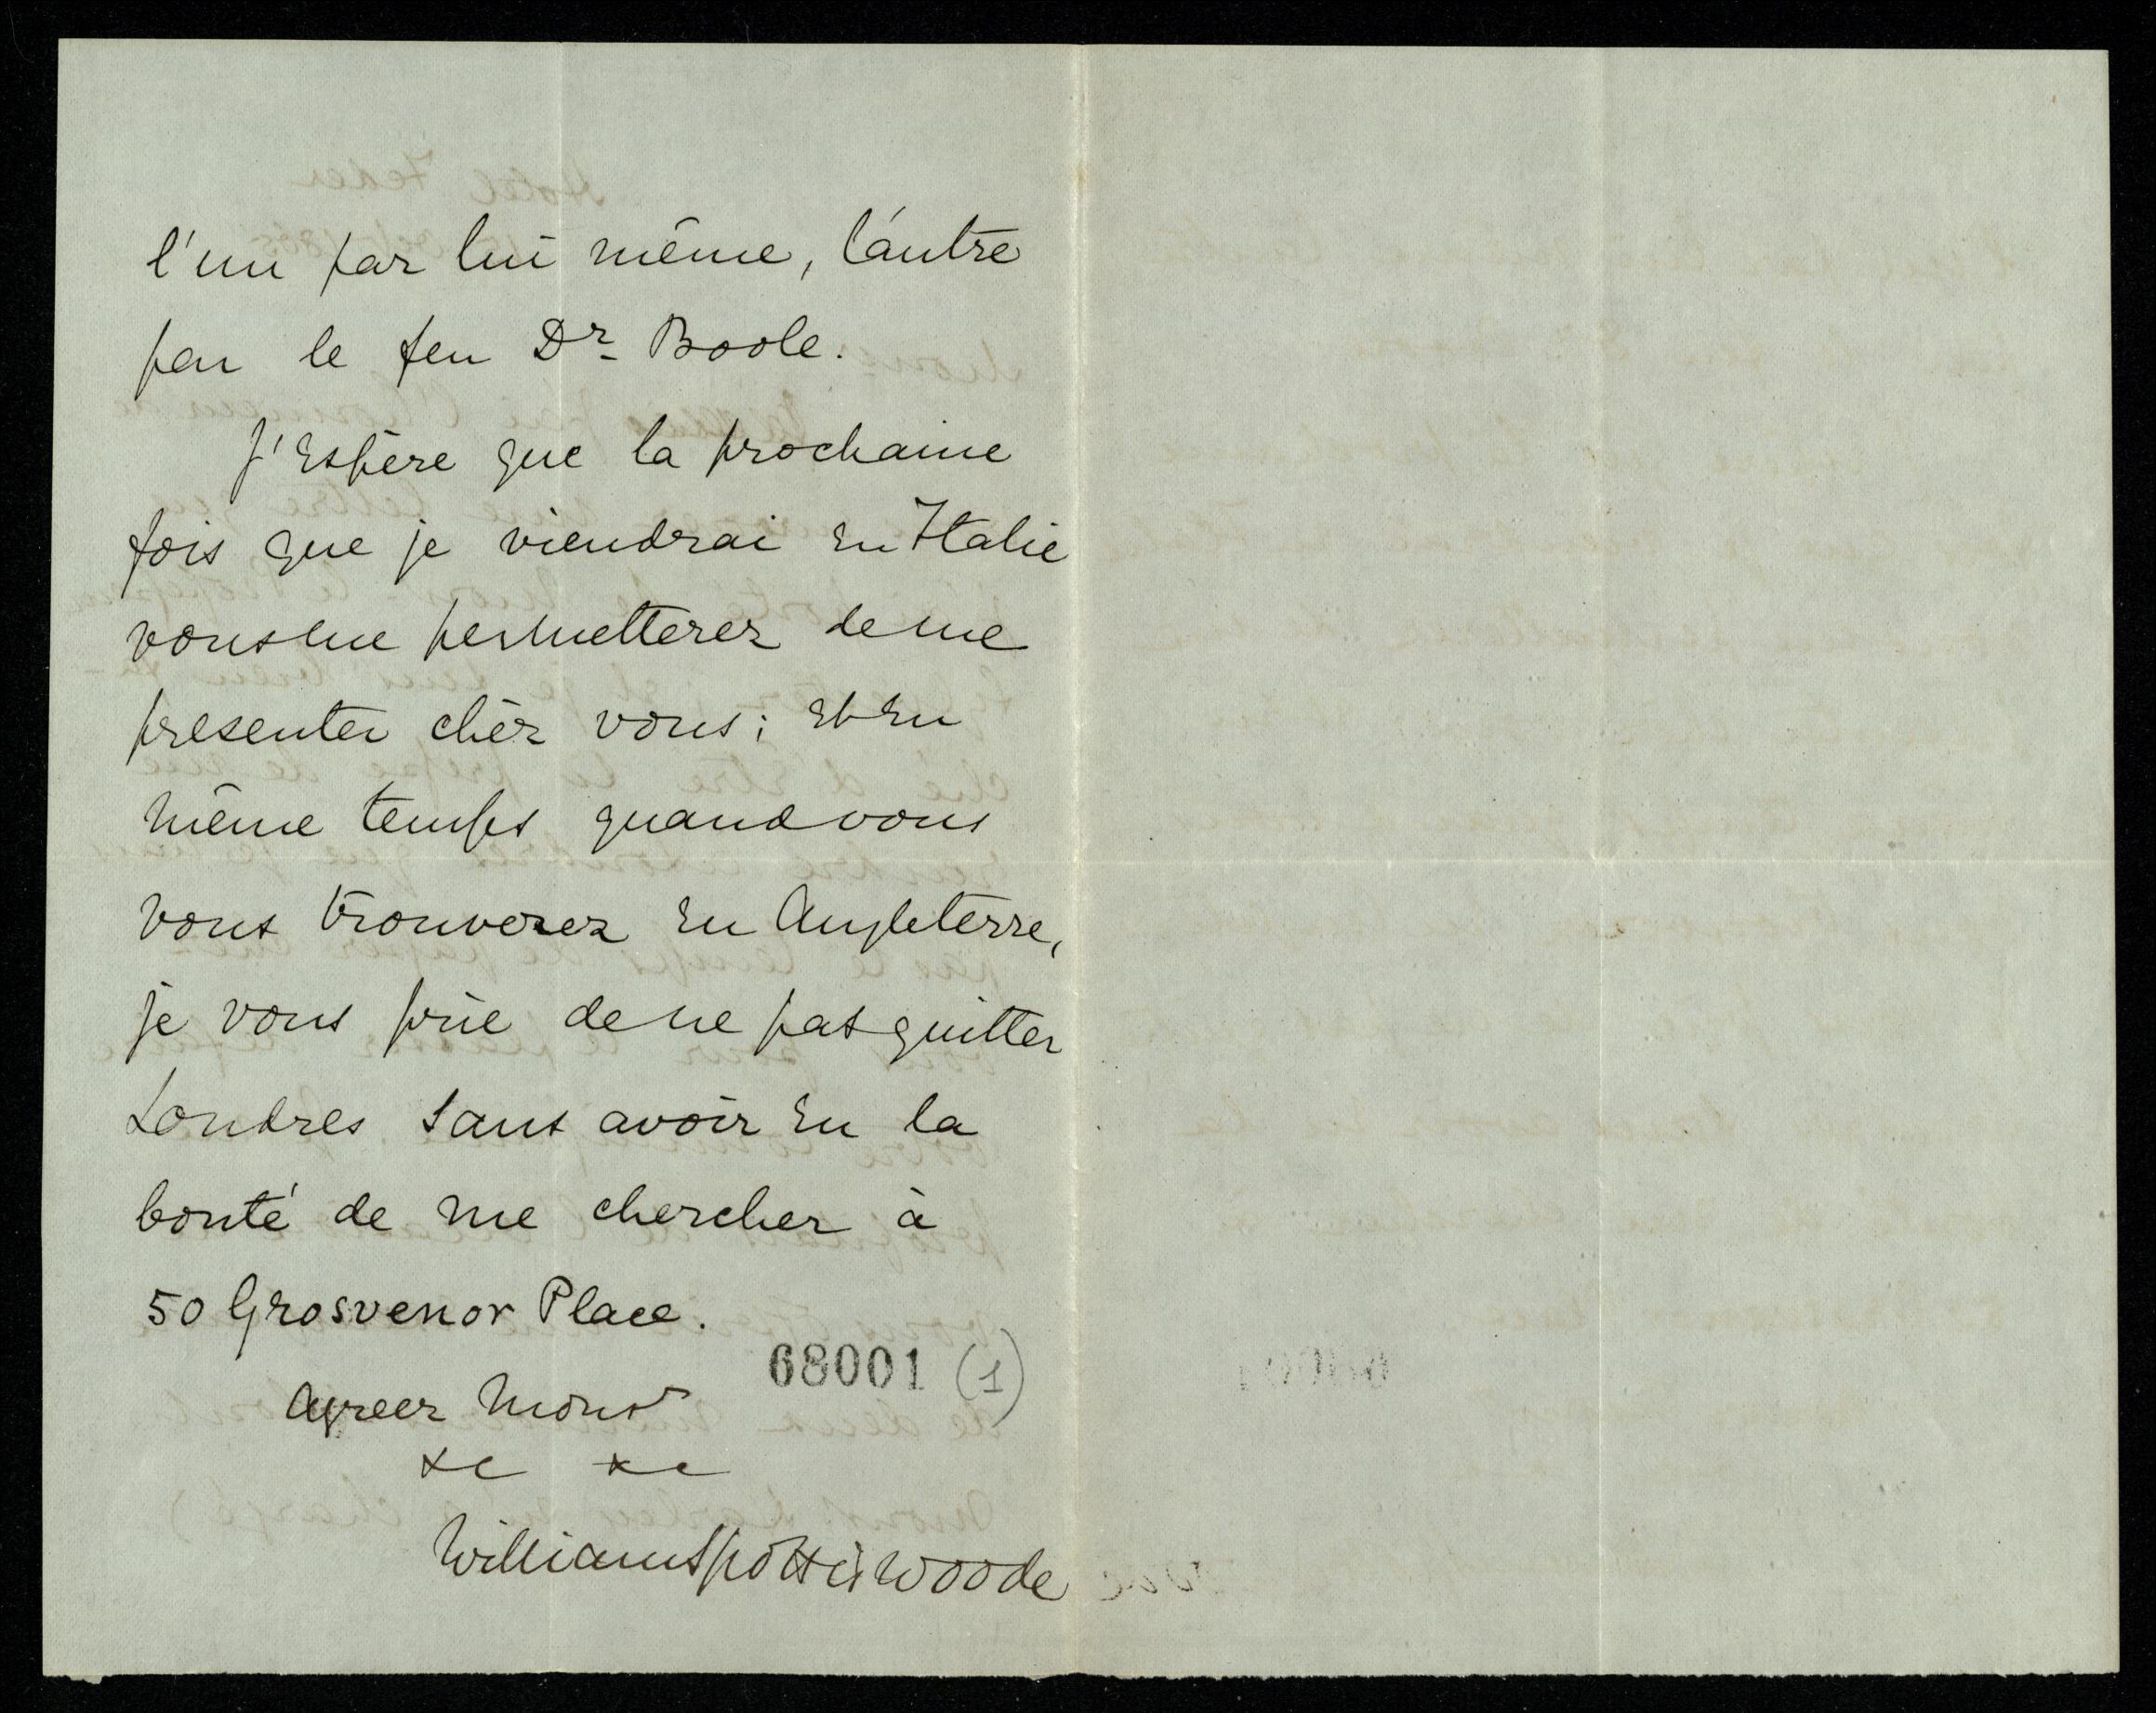 l'un par lui même, l'autre
par le feu Dr Boole.
J'espère que la prochaine
fois que je viendrai en Italie
vous me permetterez de me
presenter chèz vous; et en
même temps quand vous
vous trouverez en Angleterre,
je vous prie de ne pas quitter
Londres sans avoir eu la
bonté de me chercher à
50 Grosvenor Place.
68001 (1)
Agreez Monsr
&c &c
William Spottiswoode